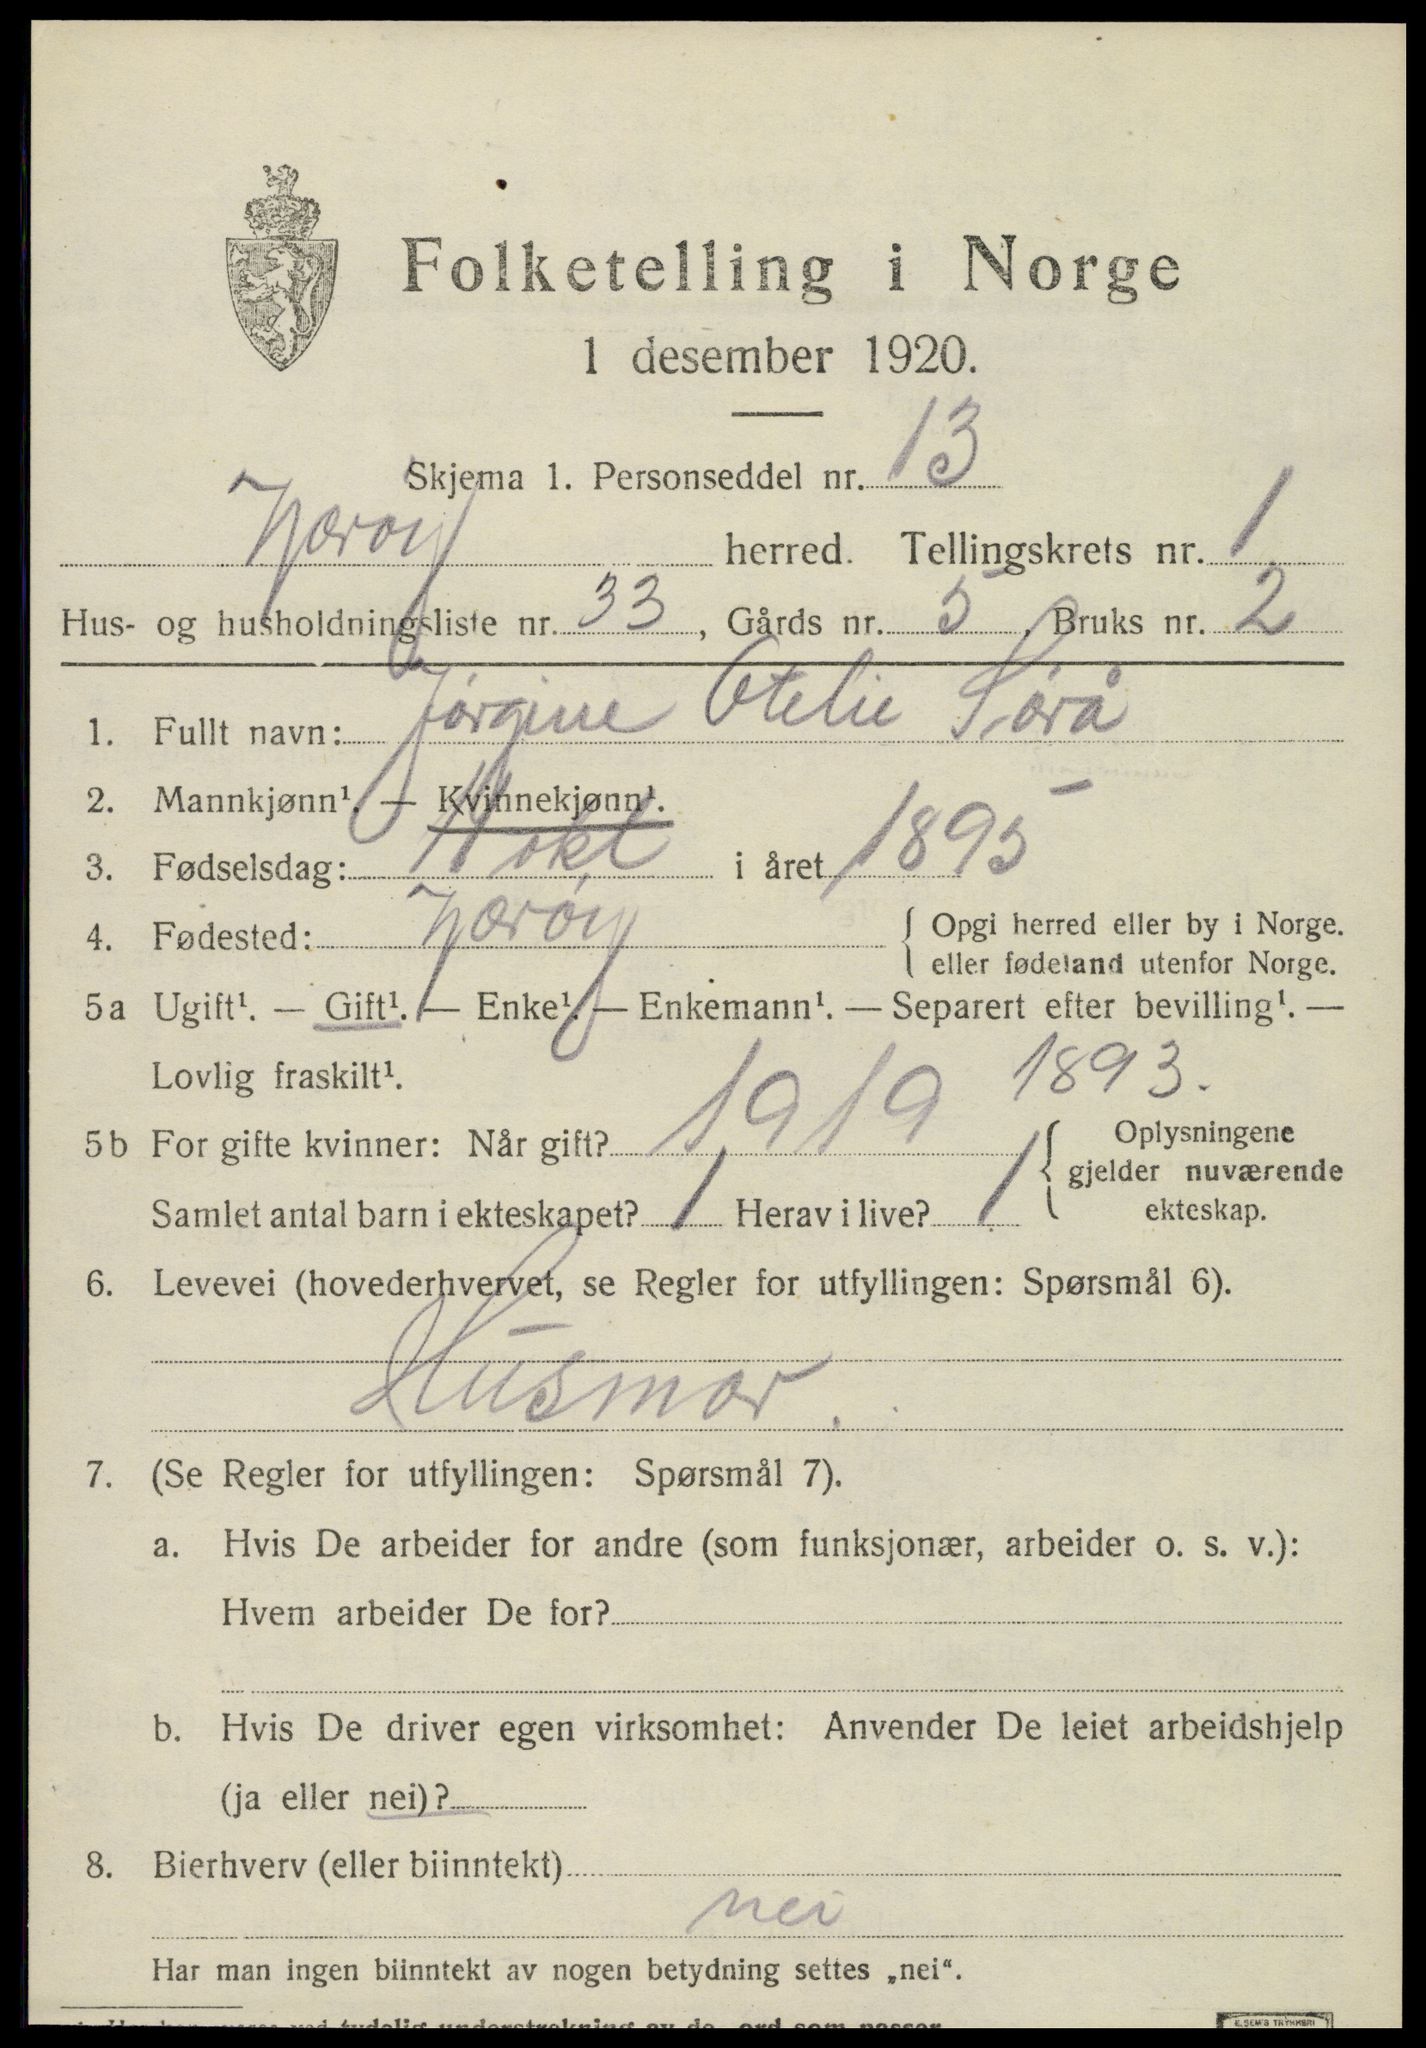 Folketelling i Norge
1 desember 1920.
Skjema 1. Personseddel nr. 13
Nærøy herred. Tellingskrets nr. 1
Hus- og husholdningsliste nr. 33, Gårds nr. 5, Bruks nr. 2
1. Fullt navn: Jørgine Otelie Sørå
2. Mannkjønn¹. — Kvinnekjønn¹.
3. Fødselsdag: 11 okt i året 1895
4. Fødested: Nærøy { Opgi herred eller by i Norge.
eller fødeland utenfor Norge.
5a Ugift¹. — Gift¹. — Enke¹. — Enkemann¹. — Separert efter bevilling¹. —
Lovlig fraskilt¹. 1893.
5b For gifte kvinner: Når gift? 1919 { Oplysningene
gjelder nuværende
Samlet antal barn i ekteskapet? 1 Herav i live? 1 ekteskap.
6. Levevei (hovederhvervet, se Regler for utfyllingen: Spørsmål 6).
Husmor.
7. (Se Regler for utfyllingen: Spørsmål 7).
a. Hvis De arbeider for andre (som funksjonær, arbeider o. s. v.):
Hvem arbeider De for?
b. Hvis De driver egen virksomhet: Anvender De leiet arbeidshjelp
(ja eller nei)?
8. Bierhverv (eller biinntekt)
nei
Har man ingen biinntekt av nogen betydning settes „nei“.
tydelig understrekning av de ord som passer
E. SEM'S TRYKKERI